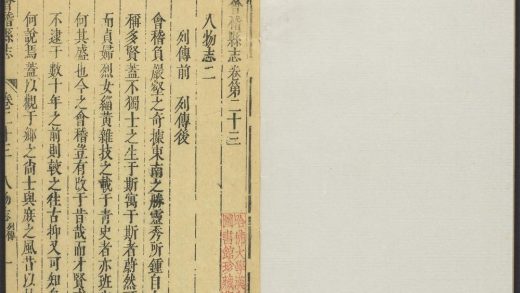 會稽縣志卷第二十三
人物志二
列傳前 列傳後
會稽負巖壑之奇據東南之勝靈秀所鍾自
稱多賢蓋不獨士之生于斯寓于斯者蔚然
而貞婦烈女緇黃雜技之載于青史者亦班
何其盛也今之會稽豈有改于昔哉而才賢
不逮于數十年之前則較之往古抑又可知
何說焉蓋以觀于鄉之尚士與庶之風昔以
會稽縣志 卷二十三 人物志 列傳 一
哈佛大學漢
圖書館珍藏